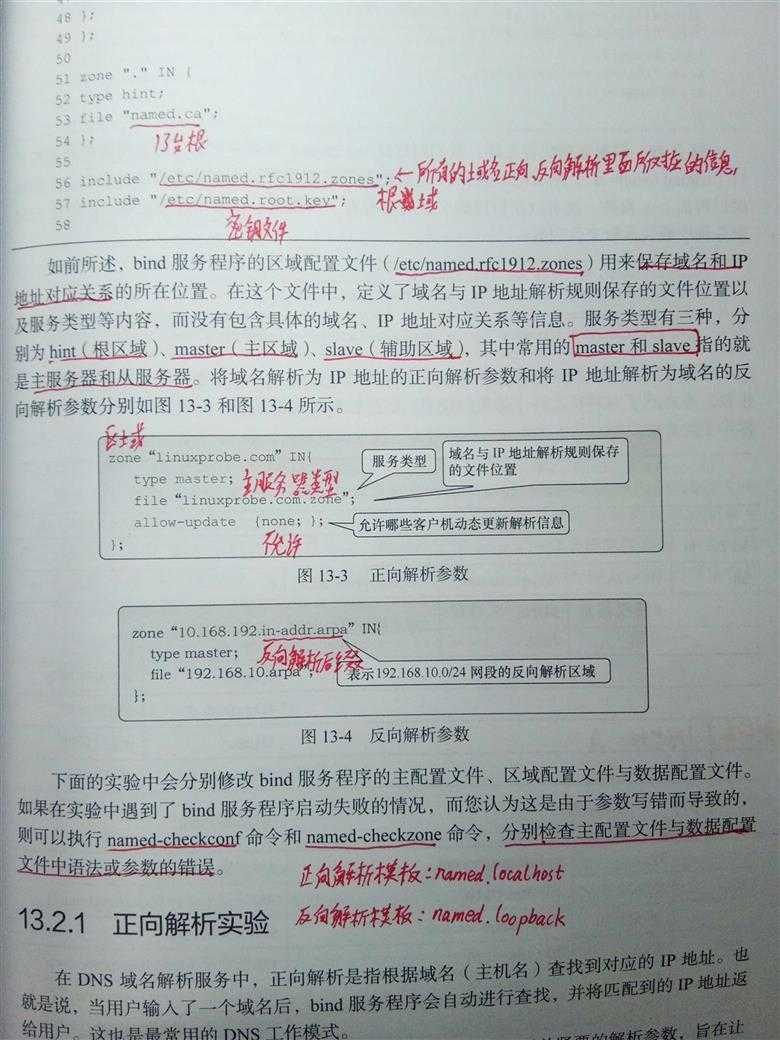 48 };
49 };
50
51 zone "." IN {
52 type hint;
53 file "named.ca";
54 };
13台根
55
56 include "/etc/named.rfc1912.zones"; ←所有的土或名正向、反向解析里面所对应的信息,
57 include "/etc/named.root.key"; 根土或
密钥文件
58
如前所述，bind 服务程序的区域配置文件（/etc/named.rfc1912.zones）用来保存域名和 IP
地址对应关系的所在位置。在这个文件中，定义了域名与 IP 地址解析规则保存的文件位置以
及服务类型等内容，而没有包含具体的域名、IP 地址对应关系等信息。服务类型有三种，分
别为 hint（根区域）、master（主区域）、slave（辅助区域），其中常用的 master 和 slave 指的就
是主服务器和从服务器。将域名解析为 IP 地址的正向解析参数和将 IP 地址解析为域名的反
向解析参数分别如图 13-3 和图 13-4 所示。
区土或
zone “linuxprobe.com” IN{
服务类型
域名与 IP 地址解析规则保存
的文件位置
type master; 主服务器类型
file “linuxprobe.com.zone”;
allow-update {none; };
允许哪些客户机动态更新解析信息
}; 不允许
图 13-3 正向解析参数
zone “10.168.192.in-addr.arpa” IN{
type master; 反向解析后缀
file “192.168.10.arpa”;
表示192.168.10.0/24 网段的反向解析区域
};
图 13-4 反向解析参数
下面的实验中会分别修改 bind 服务程序的主配置文件、区域配置文件与数据配置文件。
如果在实验中遇到了 bind 服务程序启动失败的情况，而您认为这是由于参数写错而导致的，
则可以执行 named-checkconf 命令和 named-checkzone 命令，分别检查主配置文件与数据配置
文件中语法或参数的错误。
正向解析模板：named.localhost
13.2.1 正向解析实验
反向解析模板：named.loopback
在 DNS 域名解析服务中，正向解析是指根据域名（主机名）查找到对应的 IP 地址。也
就是说，当用户输入了一个域名后，bind 服务程序会自动进行查找，并将匹配到的 IP 地址返
给用户。这也是最常用的 DNS 工作模式。
要的解析参数，旨在让